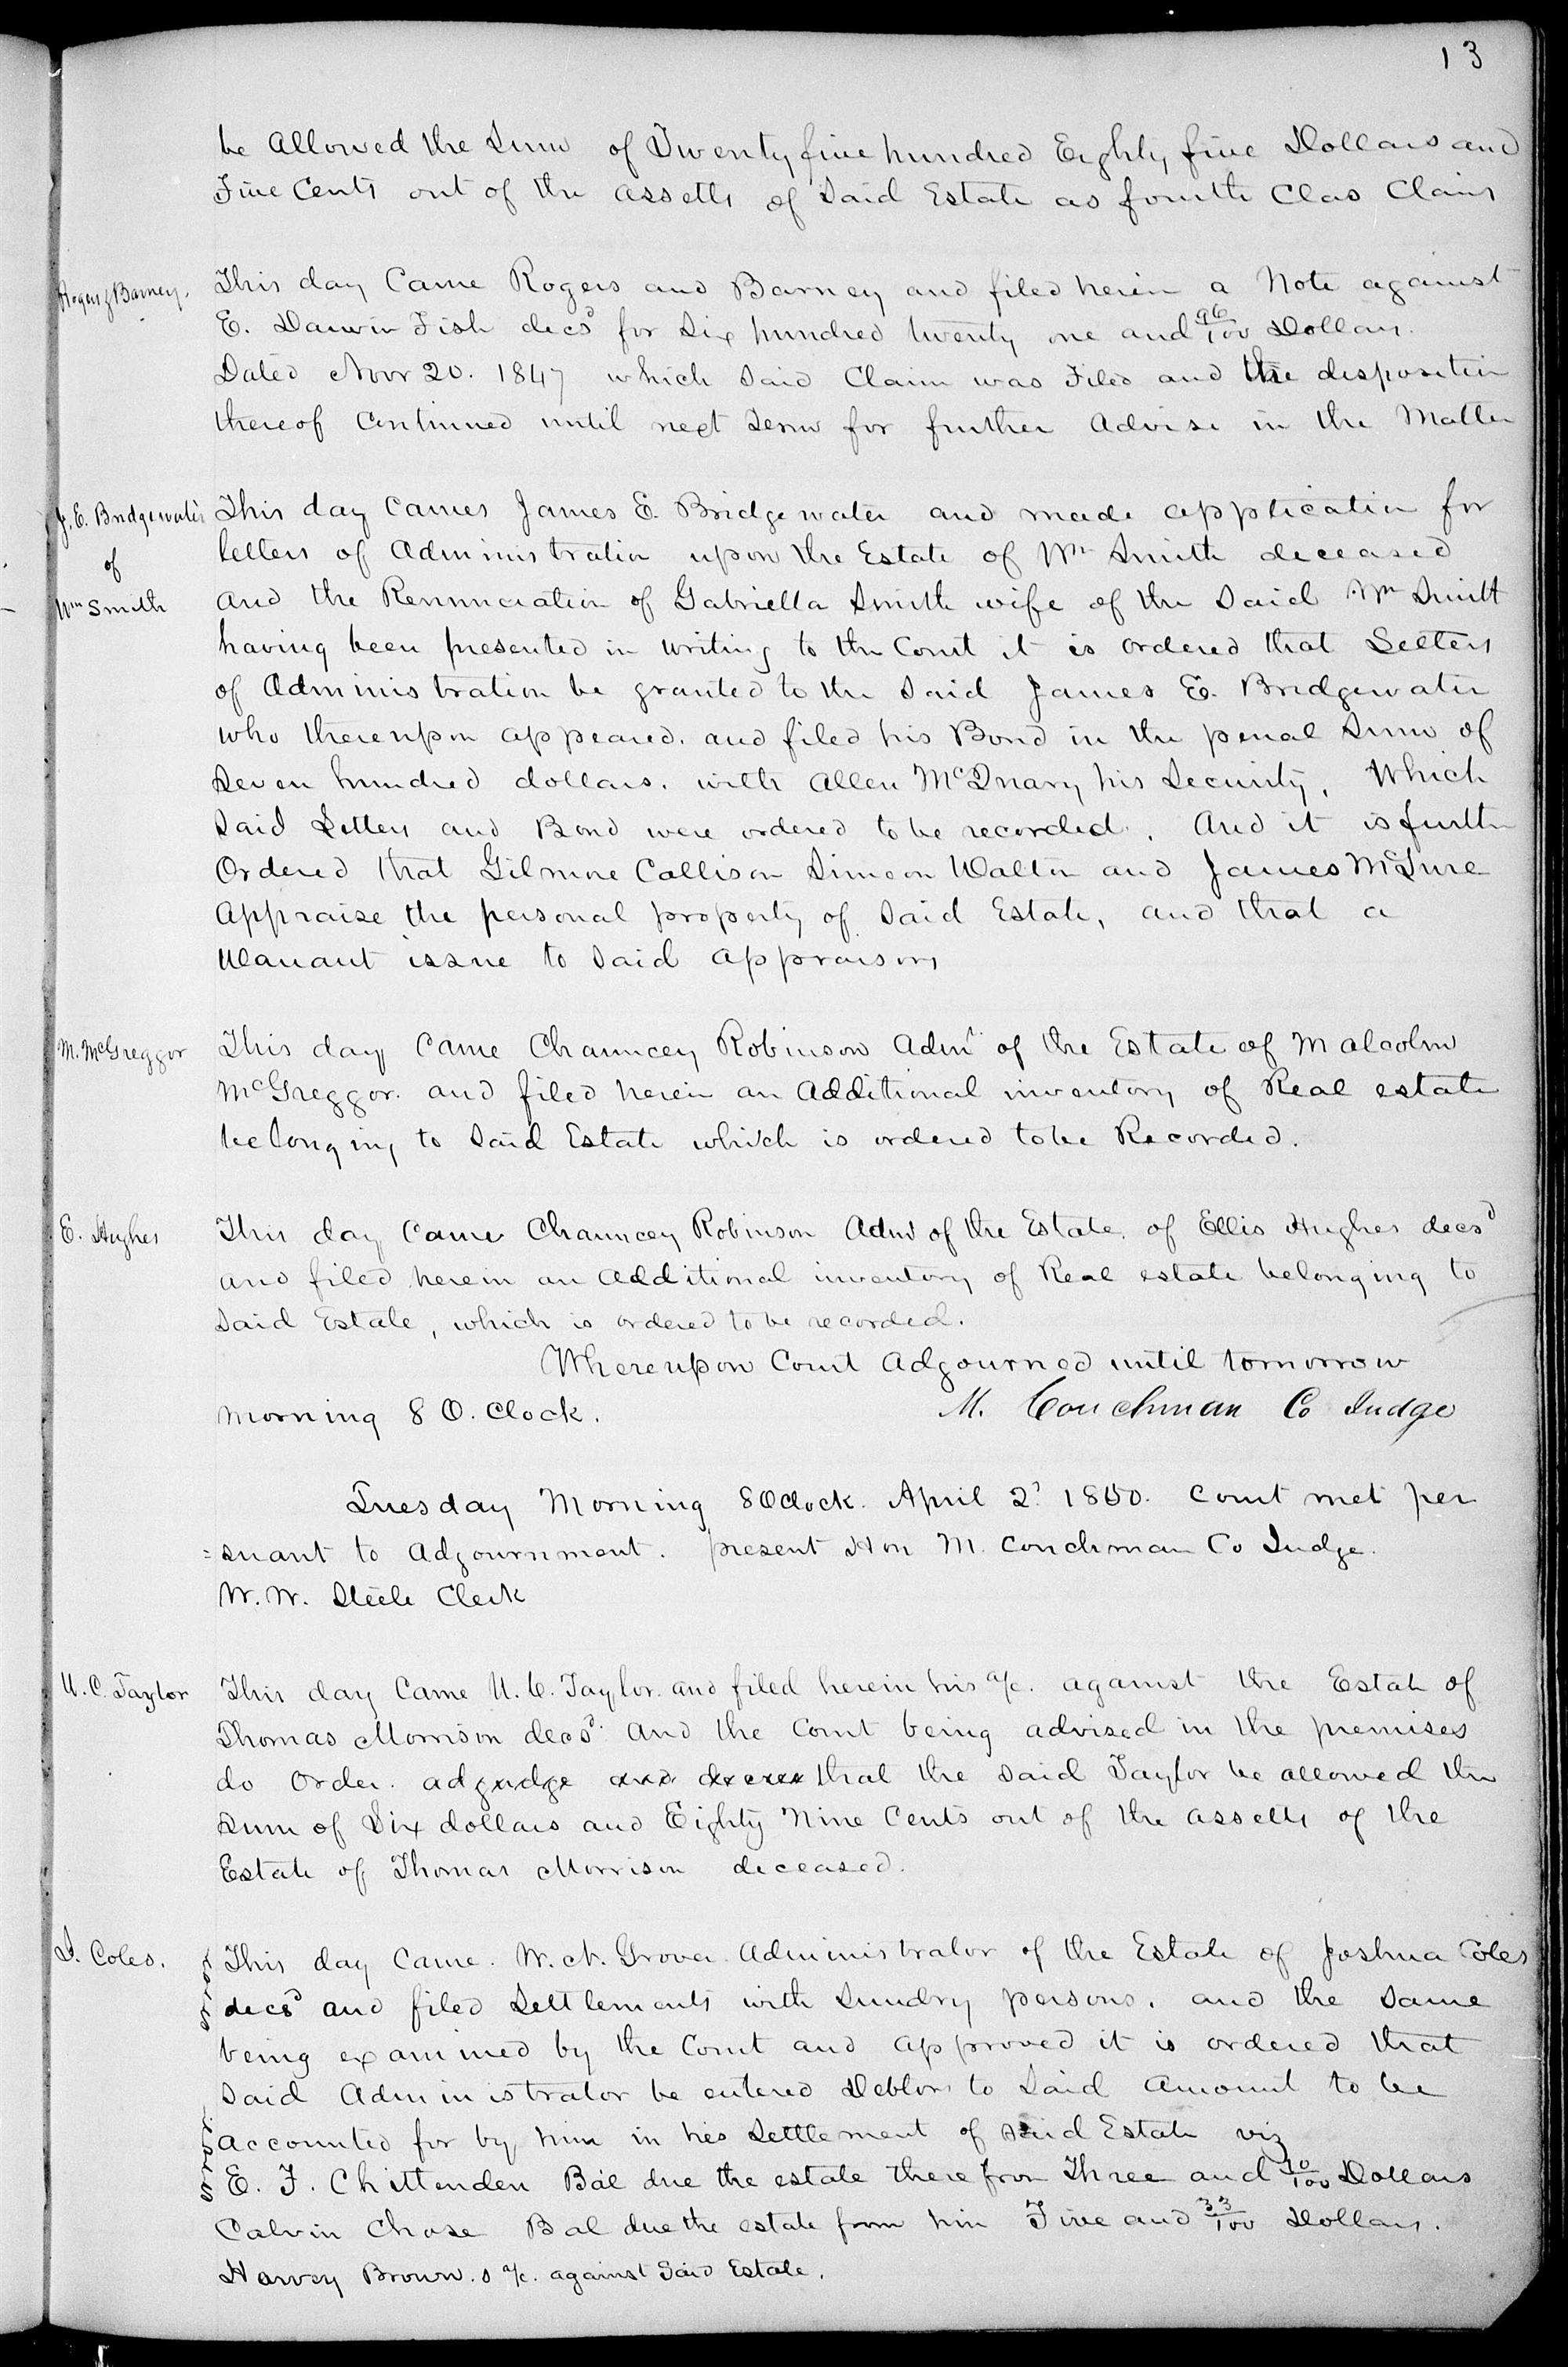 13
be Allowed the Sum of Twenty five hundred Eighty five Dollars and
Five Cents out of the assetts of Said Estate as fourth Clas Claims
Rogers & Barney.
This day Came Rogers and Barney and filed herein a Note against
E. Darwin Fish decsd for Six hundred twenty one and 96/100 Dollars.
Dated Novr 20. 1847 which Said Claim was Filed and the disposition
thereof Continued until next Term for further Advise in the Matter
J. E. Bridgewater
of
Wm Smith
This day Comes James E. Bridgewater and made application for
letters of Administration upon the Estate of Wm Smith deceased
and the Renunciation of Gabriella Smith wife of the Said Wm Smith
having been presented in writing to the Court it is ordered that Letters
of Administration be granted to the Said James E. Bridgewater
who thereupon appeared. and filed his Bond in the penal Sum of
Seven hundred dollars. with Allen McQuary his Security, Which
Said Letters and Bond were ordered to be recorded. And it is further
Ordered that Gilmore Callison Simeon Walton and James McLure
Appraize the personal property of Said Estate, and that a
Warrant issue to Said appraisors
M. McGreggor
This day Came Chauncey Robinson Admr of the Estate of Malcolm
McGreggor. and filed herein an Additional inventory of Real estate
belonging to Said Estate which is ordered to be Recorded.
E. Hughes
This day Came Chauncey Robinson Admr of the Estate of Ellis Hughes decsd
and filed herein an Additional inventory of Real estate belonging to
Said Estate, which is ordered to be recorded.
Whereupon Court Adjourned until tomorrow
morning 8 O. Clock.
M. Couchman Co Judge
Tuesday Morning 8 Oclock. April 2d 1850. Court met per
=suant to Adjournment. present Hon M. Couchman Co Judge.
W. W. Steele Clerk
U. C. Taylor
This day Came U. C. Taylor. and filed herein his a/c. against the Estate of
Thomas Morrison decsd. And the Court being advised in the premises
do Order. adjudge and decree that the Said Taylor be allowed the
Sum of Six dollars and Eighty Nine Cents out of the assetts of the
Estate of Thomas Morrison deceased.
J. Coles.
This day Came. W. N. Grover Administrator of the Estate of Joshua Coles
decsd and filed Settlements with Sundry persons. and the Same
being examined by the Court and approved it is ordered that
Said Administrator be entered Debtor to Said Amount to be
accounted for by him in his Settlement of said Estate viz
E. F. Chittenden Bal due the estate therefrom Three and 10/100 Dollars
Calvin Chase Bal due the estate from him Five and 33/100 Dollars.
Harvey Brown.s a/c. against Said Estate.